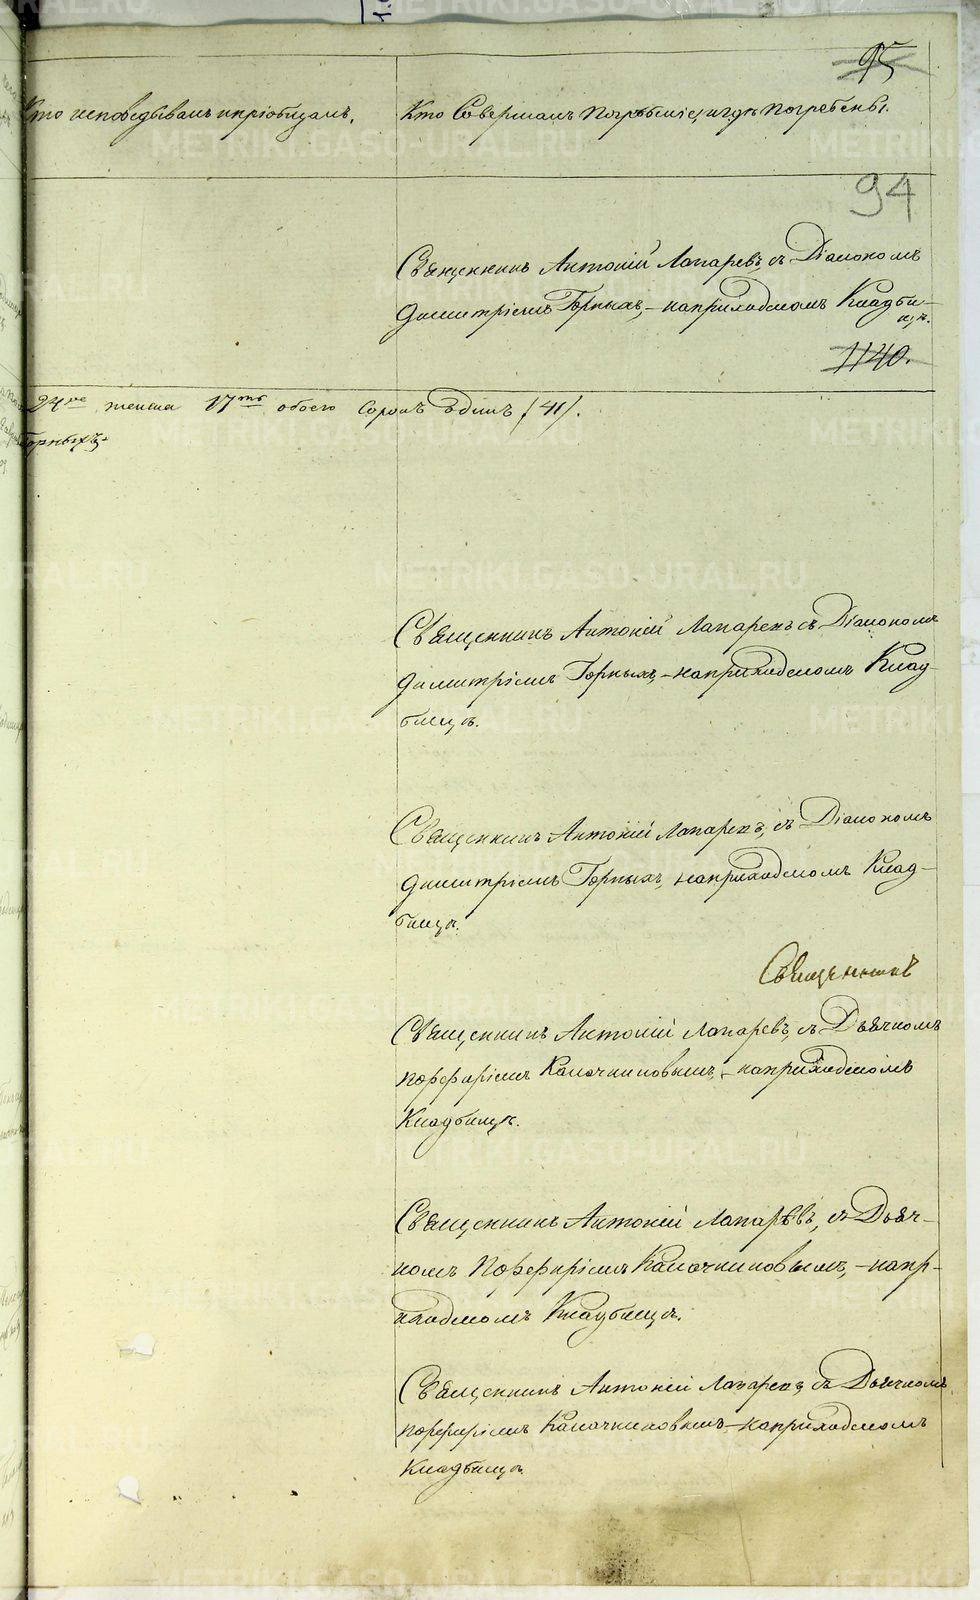 95
Кто исповѣдывалъ и пріобщалъ.
Кто Совершалъ Погребеніе, и гдѣ Погребены.
94
Священникъ Антоній Лапаревъ, съ Діакономъ
Димитріемъ Горныхъ, – на приходскомъ Кладби-
щѣ.
1140.
24ре женска 17ть обоего Сорокъ Одинъ /41/.
Горныхъ
Священникъ Антоній Лапаревъ съ Діакономъ
Димитріемъ Горныхъ, – на приходскомъ Клад-
бищѣ.
Священникъ Антоній Лапаревъ, съ Діакономъ
Димитріемъ Горныхъ, на приходскомъ Клад-
бищѣ.
Священникъ
Священникъ Антоній Лапаревъ, съ Дьячкомъ
Порфиріемъ Калачниковымъ, – на приходскомъ
Кладбищѣ.
Священникъ Антоній Лапарѣвъ, съ Дьяч-
комъ Порфиріемъ Калачниковымъ, – на пр-
иходскомъ Кладбищѣ.
Священникъ Антоній Лапаревъ, съ Дьячкомъ
Порфиріемъ Калачниковымъ – на приходскомъ
Кладбищѣ.
METRIKI.GASO-URAL.RU